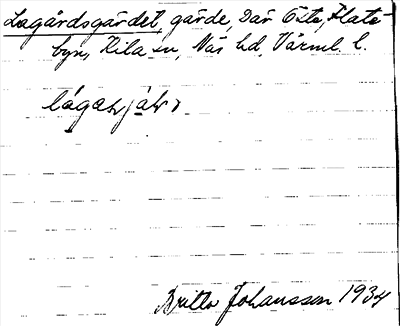 Lagårdsgärdet, gärde, Där Öste, Flate-
byn, Kila sn, Näs hd, Värml. l.
Britta Johansson 1934